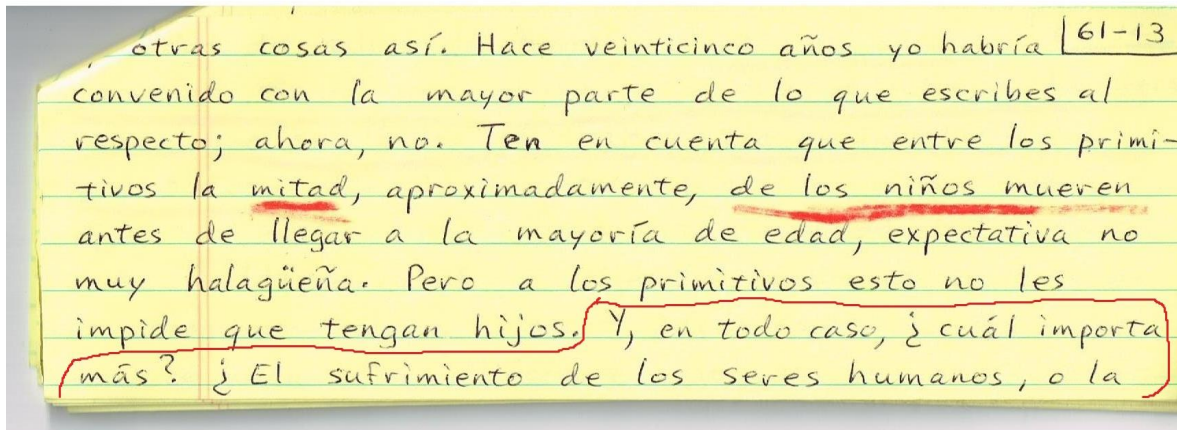 otras cosas así. Hace veinticinco años yo habría 61-13
convenido con la mayor parte de lo que escribes al
respecto; ahora, no. Ten en cuenta que entre los primi-
tivos la mitad, aproximadamente, de los niños mueren
antes de llegar a la mayoría de edad, expectativa no
muy halagüeña. Pero a los primitivos esto no les
impide que tengan hijos. Y, en todo caso, ¿cuál importa
más? ¿El sufrimiento de los seres humanos, o la